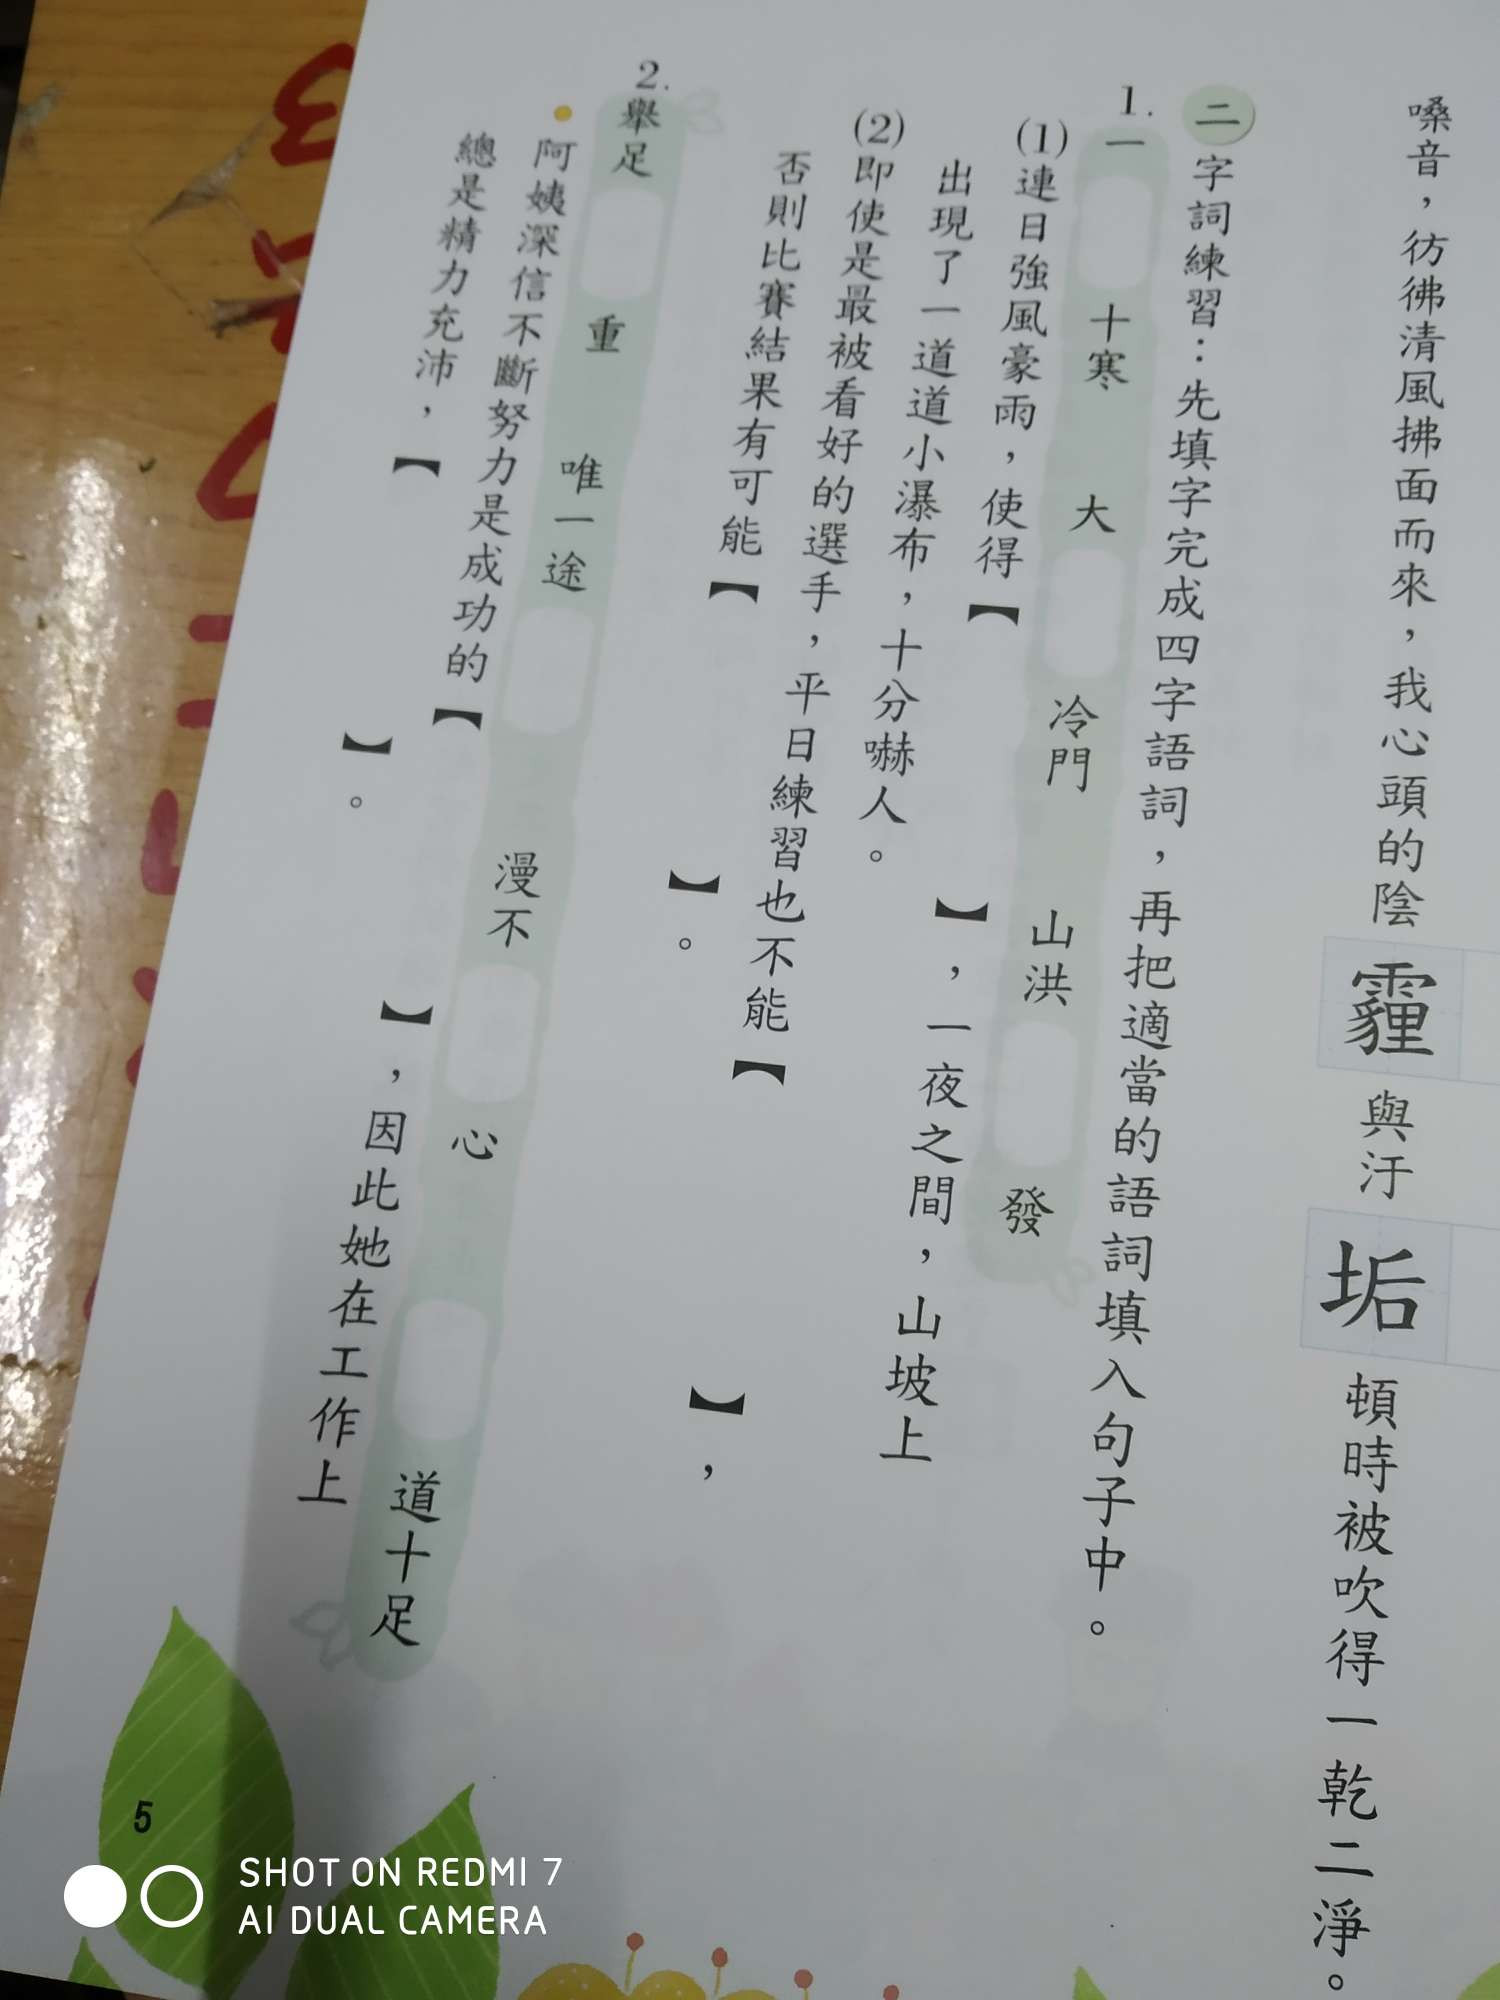 嗓音，彷彿清風拂面而來，我心頭的陰霾與汙垢頓時被吹得一乾二淨。
二 字詞練習：先填字完成四字語詞，再把適當的語詞填入句子中。
1. 一 十寒 大 冷門 山洪 發
(1)連日強風豪雨，使得【 】，一夜之間，山坡上
出現了一道道小瀑布，十分嚇人。
(2)即使是最被看好的選手，平日練習也不能【 】，
否則比賽結果有可能【 】。
2. 舉足 重 唯一途 漫不 心 道十足
阿姨深信不斷努力是成功的【 】，因此她在工作上
總是精力充沛，【 】。
5
SHOT ON REDMI 7
AI DUAL CAMERA